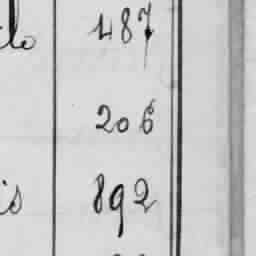 487
206
is 892